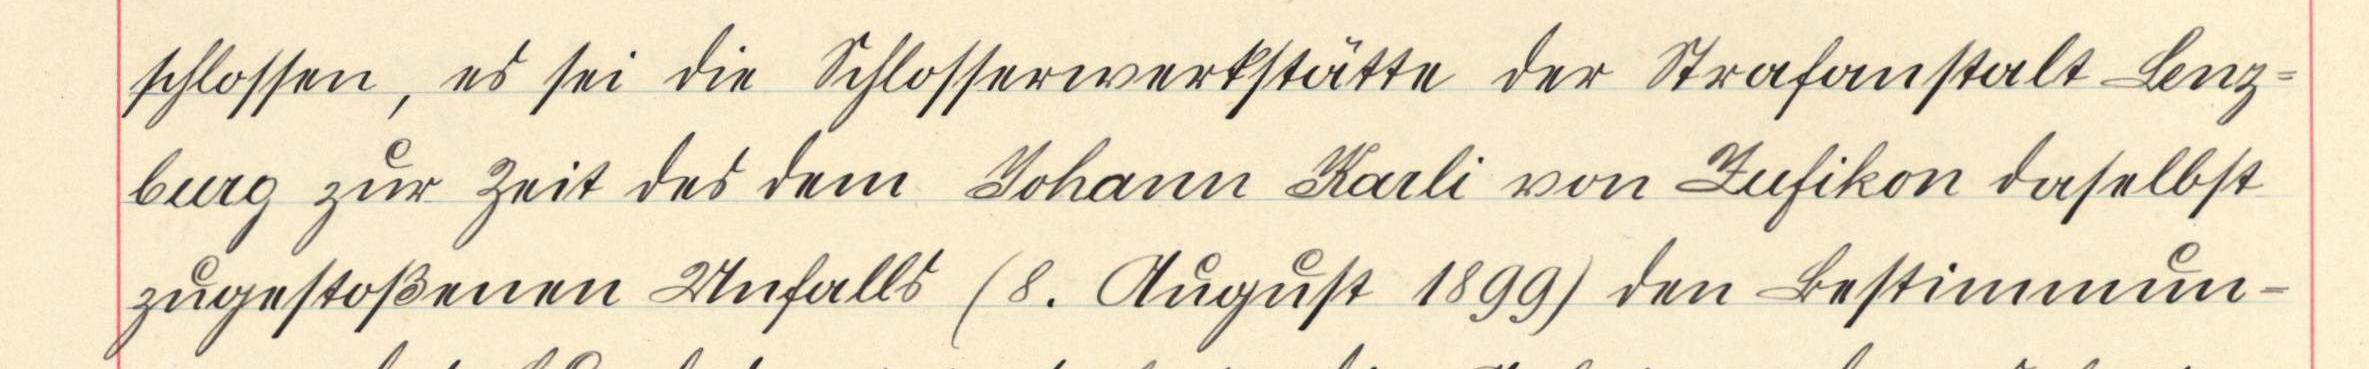 schlossen, es sei die Schlosserwerkstätte der Strafanstalt Lenz=
burg zur Zeit des dem Johann Karli von Zufikon daselbst
zugestoßenen Unfalls (8. August 1899) den Bestimmun=